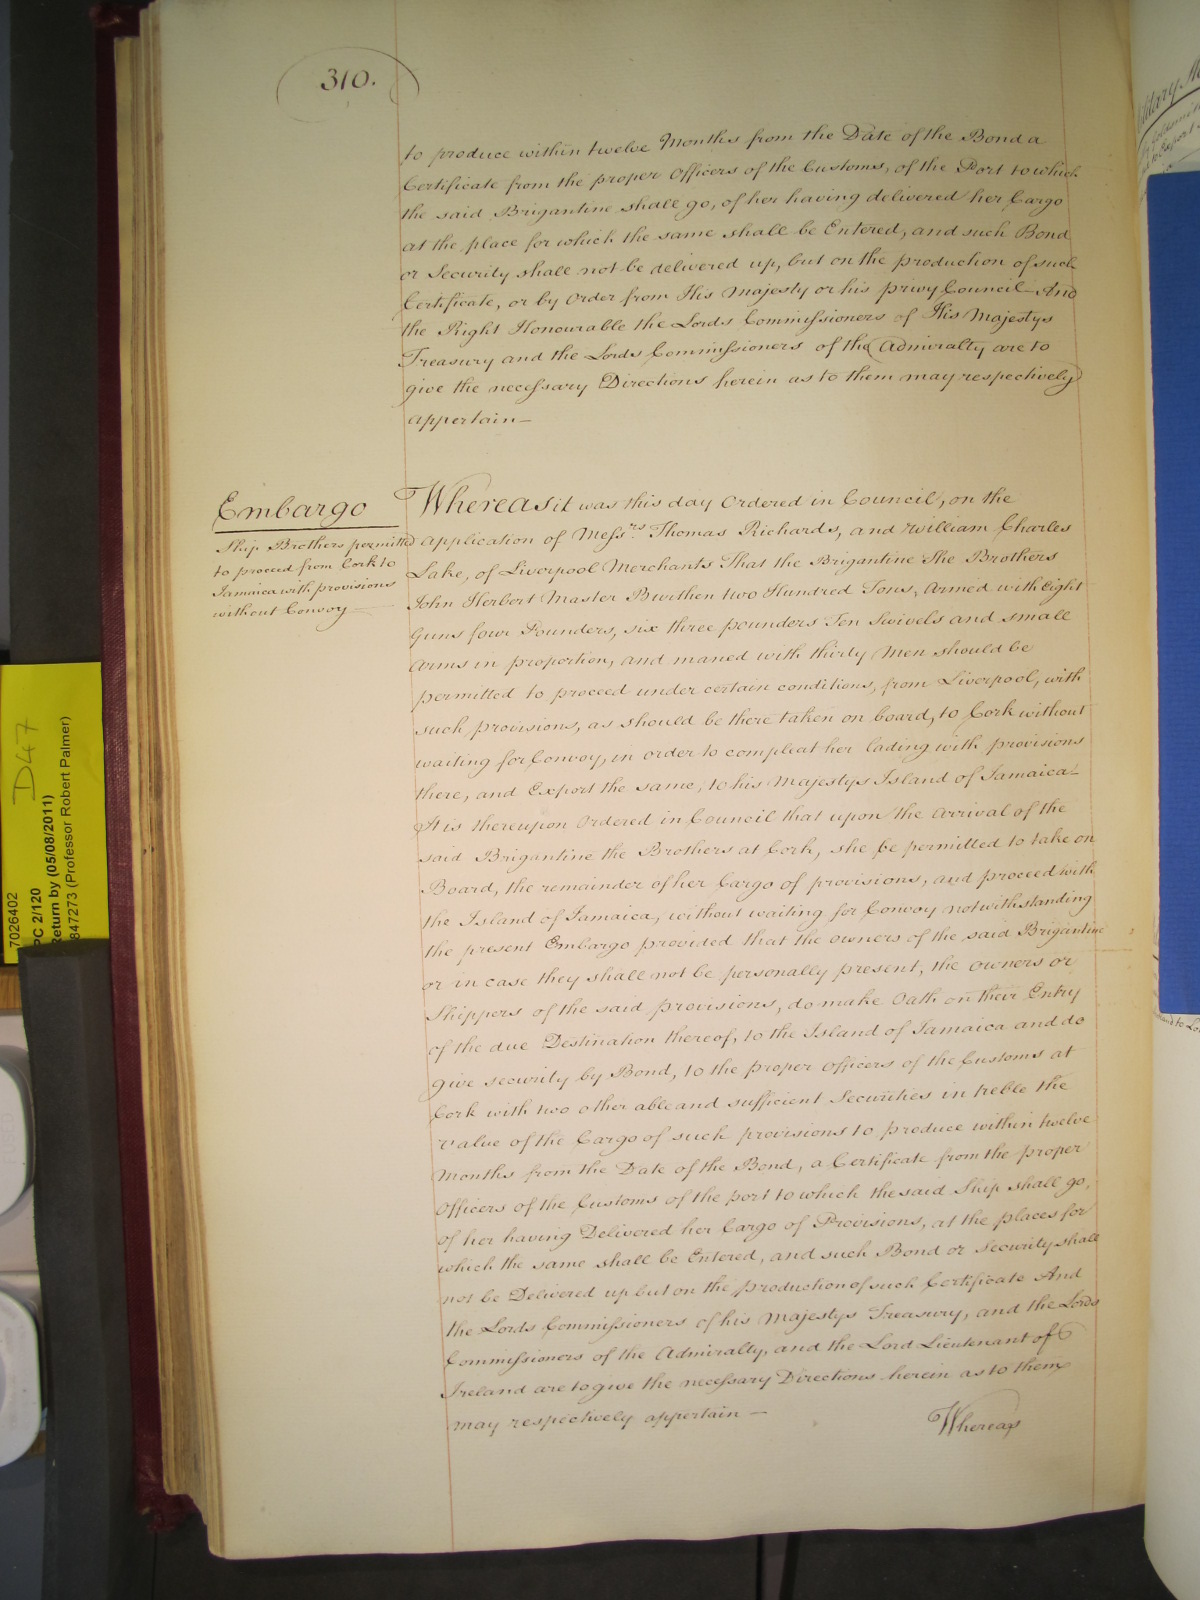 310.
to produce within twelve Months from the Date of the Bond a
Certificate from the proper Officers of the Customs, of the Port to which
the said Brigantine shall go, of her having delivered her Cargo
at the place for which the same shall be Entered, and such Bond
or Security shall not be delivered up, but on the production of such
Certificate, or by Order from His Majesty or his privy Council And
the Right Honourable the Lords Commissioners of His Majestys
Treasury and the Lords Commissioners of the Admiralty are to
give the necessary Directions herein as to them may respectively
appertain—
Embargo
Ship Brothers permitted
to proceed from Cork to
Jamaica with provisions
without Convoy—
Whereas it was this day Ordered in Council, on the
application of Messrs. Thomas Richards, and William Charles
Lake, of Liverpool Merchants That the Brigantine The Brothers
John Herbert Master Burthen two Hundred Tons, Armed with Eight
Guns four Pounders, six three pounders Ten Swivels and small
Arms in proportion, and maned with thirty Men should be
permitted to proceed under certain conditions, from Liverpool, with
such provisions, as should be there taken on board, to Cork without
waiting for Convoy, in order to compleat her lading with provisions
there, and Export the same, to his Majestys Island of Jamaica—
It is thereupon Ordered in Council that upon the Arrival of the
said Brigantine the Brothers at Cork, she be permitted to take on
Board, the remainder of her Cargo of provisions, and proceed with
the Island of Jamaica, without waiting for Convoy notwithstanding
the present Embargo provided that the owners of the said Brigantine
or in case they shall not be personally present, the owners or
Shippers of the said provisions, do make Oath on their Entry
of the due Destination thereof, to the Island of Jamaica and do
give security by Bond, to the proper Officers of the Customs at
Cork with two other able and sufficient Securities in treble the
value of the Cargo of such provisions to produce within twelve
Months from the Date of the Bond, a Certificate from the proper
Officers of the Customs of the port to which the said Ship shall go,
of her having Delivered her Cargo of Provisions, at the places for
which the same shall be Entered, and such Bond or Security shall
not be Delivered up but on the production of such Certificate And
the Lords Commissioners of his Majestys Treasury, and the Lords
Commissioners of the Admiralty, and the Lord Lieutenant of
Ireland are to give the necessary Directions herein as to them
may respectively appertain—
Whereas
D47
7026402
PC 2/120
Return by (05/08/2011)
847273 (Professor Robert Palmer)